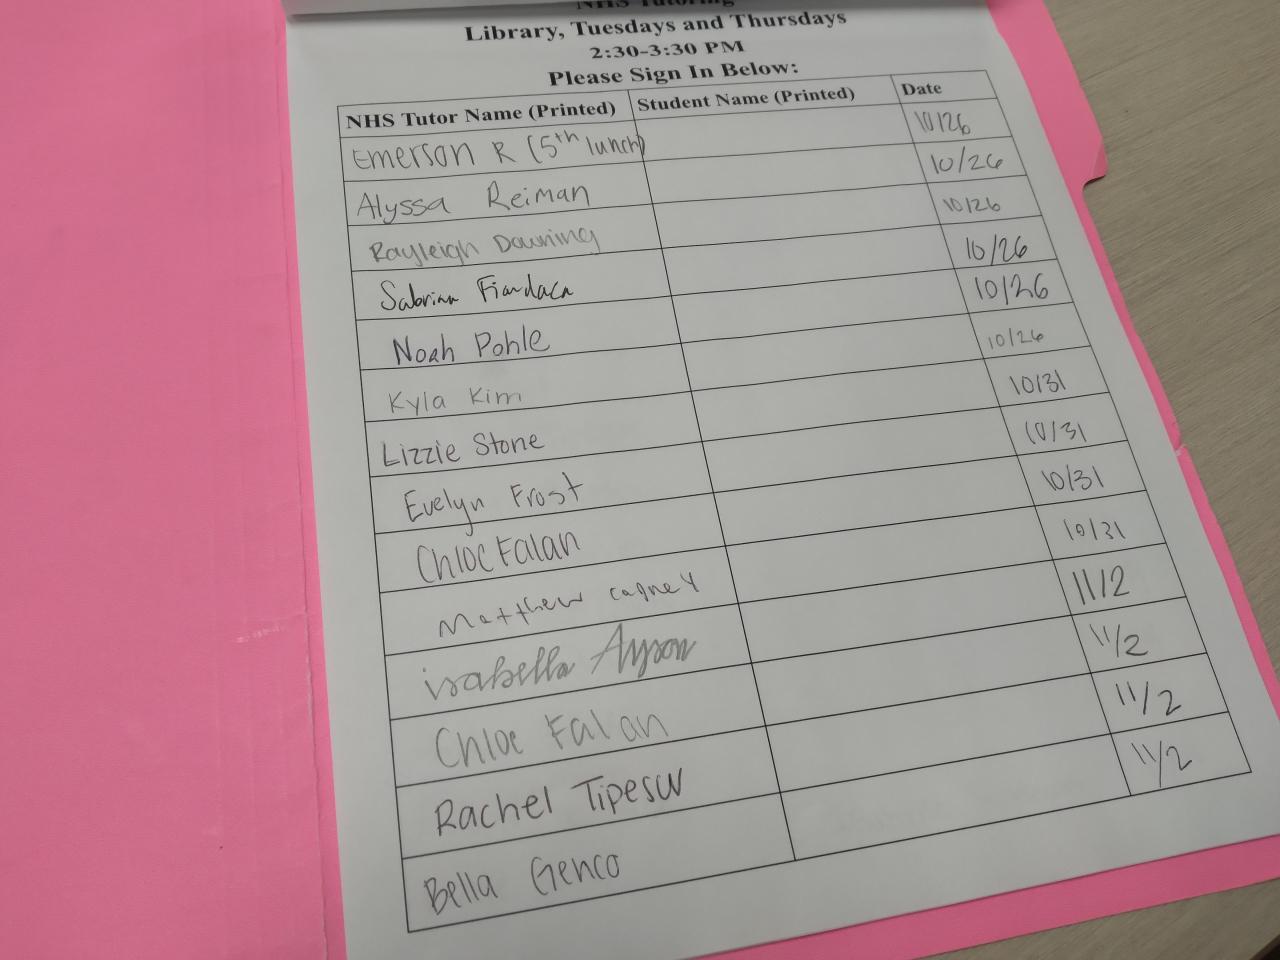 NHS Tutoring
Library, Tuesdays and Thursdays
2:30-3:30 PM
Please Sign In Below:
NHS Tutor Name (Printed) Student Name (Printed) Date
Emerson R (5th lunch) 10/26
Alyssa Reiman 10/26
Rayleigh Downing 10/26
Sabrina Fiandaca 10/26
Noah Pohle 10/26
Kyla Kim 10/26
Lizzie Stone 10/31
Evelyn Frost 10/31
Chloe Falan 10/31
Matthew cagney 10/31
isabella 11/2
Chloe Falan 11/2
Rachel 11/2
Bella Genco 11/2